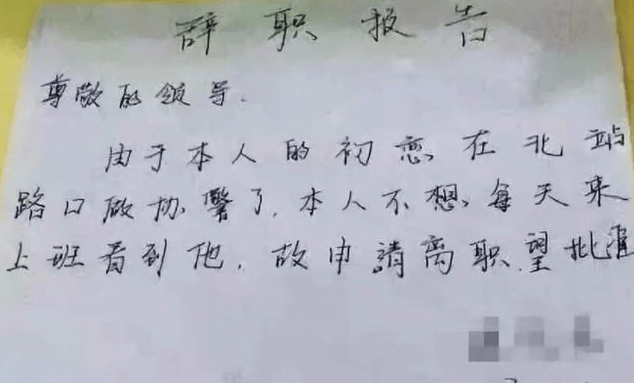 辞职报告
尊敬的领导.
由于本人的初恋在北站
路口做协警了,本人不想每天来
上班看到他,故申請离职望批准